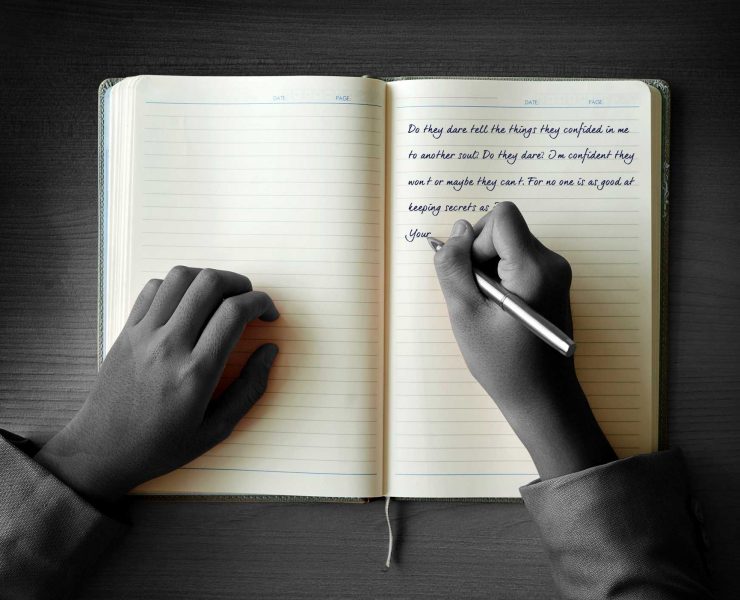 DATE: PAGE:
DATE: PAGE:
Do they dare tell the things they confided in me
to another soul? Do they dare? I'm confident they
won't or maybe they can't. For no one is as good at
keeping secrets as
Your